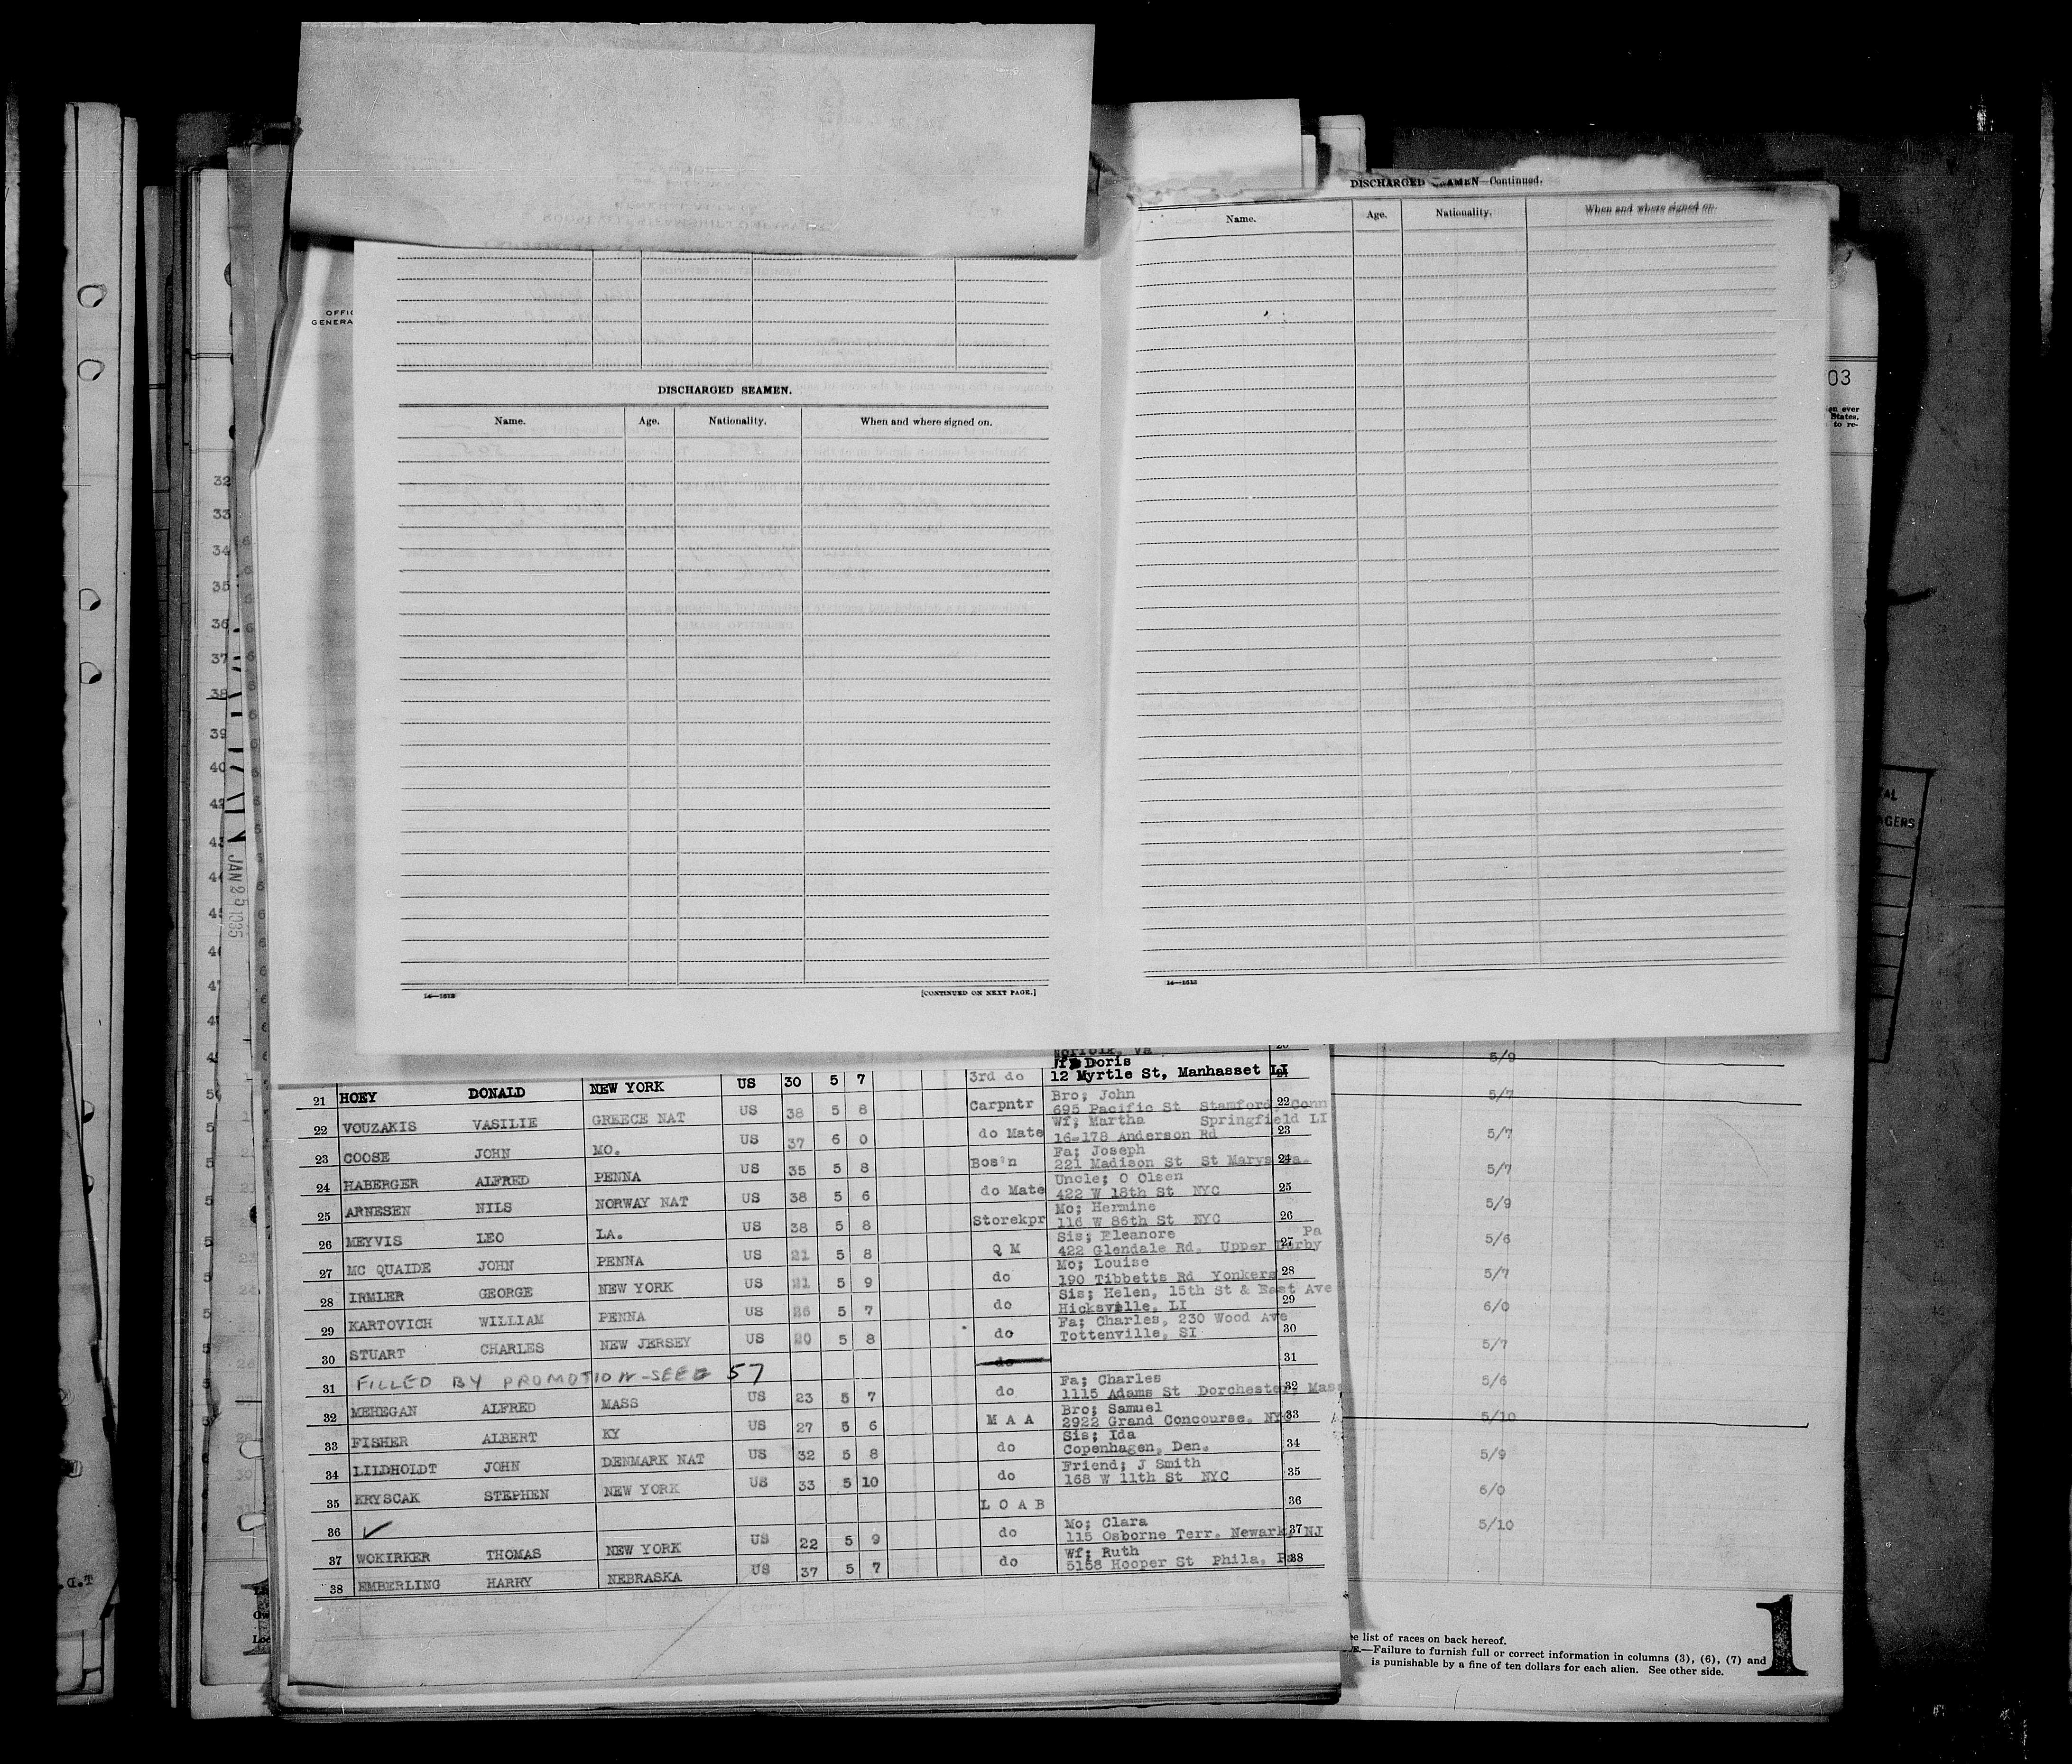 DISCHARGED SEAMEN—Continued.
Name. Age. Nationality. When and where signed on.
OFFIC
GENERA
DISCHARGED SEAMEN.
Name. Age. Nationality. When and where signed on.
03
en ever
States.
to re-
32
33
34
35
36
37
38
39
40
JAN 25 1935
AL
AGERS
16—1613
[CONTINUED ON NEXT PAGE.]
16—1613
Norfolk, Va
Doris
21 HOEY DONALD NEW YORK US 30 5 7 3rd do 12 Myrtle St, Manhasset LI
Bro; John
22 VOUZAKIS VASILIE GREECE NAT US 38 5 8 Carpntr 695 Pacific St Stamford, Conn 22
Wf; Martha Springfield LI
23 COOSE JOHN MO. US 37 6 0 do Mate 16-178 Anderson Rd 23
Fa; Joseph
24 HABERGER ALFRED PENNA US 35 5 8 Bos'n 221 Madison St St Marys Pa. 24
Uncle; O Olsen
25 ARNESEN NILS NORWAY NAT US 38 5 6 do Mate 422 W 18th St NYC 25
Mo; Hermine
26 MEYVIS LEO LA. US 38 5 8 Storekpr 116 W 86th St NYC 26
Sis; Eleanore Pa
27 MC QUAIDE JOHN PENNA US 21 5 8 Q M 422 Glendale Rd. Upper Darby 27
Mo; Louise
28 IRMLER GEORGE NEW YORK US 21 5 9 do 190 Tibbetts Rd Yonkers 28
Sis; Helen, 15th St & East Ave
29 KARTOVICH WILLIAM PENNA US 26 5 7 do Hicksville, LI 29
Fa; Charles, 230 Wood Ave
30 STUART CHARLES NEW JERSEY US 20 5 8 do Tottenville, SI 30
31 FILLED BY PROMOTION-SEE 57 do 31
Fa; Charles
32 MEHEGAN ALFRED MASS US 23 5 7 do 1115 Adams St Dorchester, Mass 32
Bro; Samuel
33 FISHER ALBERT KY US 27 5 6 M A A 2922 Grand Concourse, NYC 33
Sis; Ida
34 LILDHOLDT JOHN DENMARK NAT US 32 5 8 do Copenhagen, Den. 34
Friend; J Smith
35 KRYSCAK STEPHEN NEW YORK US 33 5 10 do 168 W 11th St NYC 35
36 L O A B 36
Mo; Clara
37 WOKIRKER THOMAS NEW YORK US 22 5 9 do 115 Osborne Terr. Newark, NJ 37
Wf; Ruth
38 EMBERLING HARRY NEBRASKA US 37 5 7 do 5158 Hooper St Phila, Pa 38
5/9
5/7
5/7
5/7
5/9
5/6
5/7
6/0
5/7
5/6
5/10
5/9
6/0
5/10
e list of races on back hereof.
—Failure to furnish full or correct information in columns (3), (6), (7) and
is punishable by a fine of ten dollars for each alien. See other side.
1